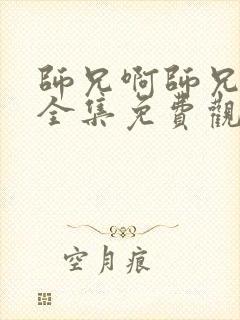 師兄啊師兄
全集免費觀
空月痕